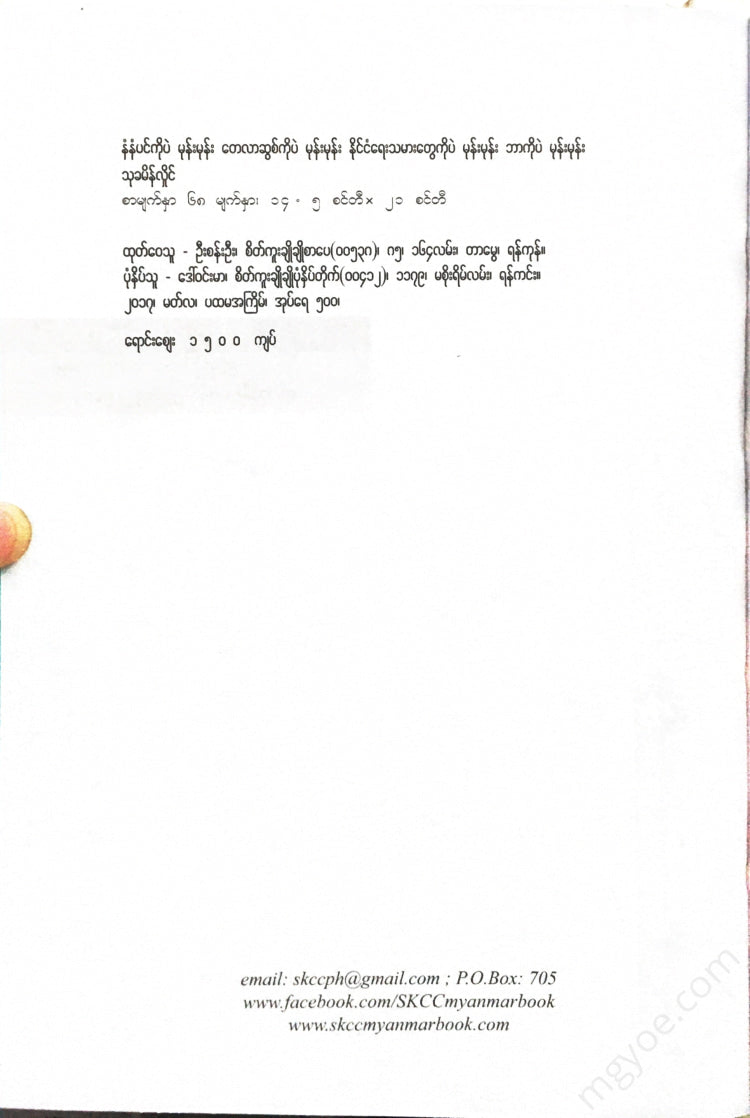 နံနံပင်ကိုပဲ မုန်းမုန်း တေလာဆွစ်ကိုပဲ မုန်းမုန်း နိုင်ငံရေးသမားတွေကိုပဲ မုန်းမုန်း ဘာကိုပဲ မုန်းမုန်း
သုခမိန်လှိုင်
စာမျက်နှာ ၆၈ မျက်နှာ၊ ၁၄ . ၅ စင်တီ× ၂၁ စင်တီ
ထုတ်ဝေသူ - ဦးစန်းဦး၊ စိတ်ကူးချိုချိုစာပေ(၀၀၅၃၈)၊ ၈၅၊ ၁၆၄လမ်း၊ တာမွေ၊ ရန်ကုန်။
ပုံနှိပ်သူ - ဒေါ်ဝင်းမာ၊ စိတ်ကူးချိုချိုပုံနှိပ်တိုက်(၀၀၄၁၂)၊ ၁၁၇၉၊ မစိုးရိမ်လမ်း၊ ရန်ကင်း။
၂၀၁၇၊ မတ်လ၊ ပထမအကြိမ်၊ အုပ်ရေ ၅၀၀၊
ရောင်းဈေး ၁ ၅ ၀ ၀ ကျပ်
email: skccph@gmail.com ; P.O.Box: 705
www.facebook.com/SKCCmyanmarbook
www.skccmyanmarbook.com
mgyoe.com